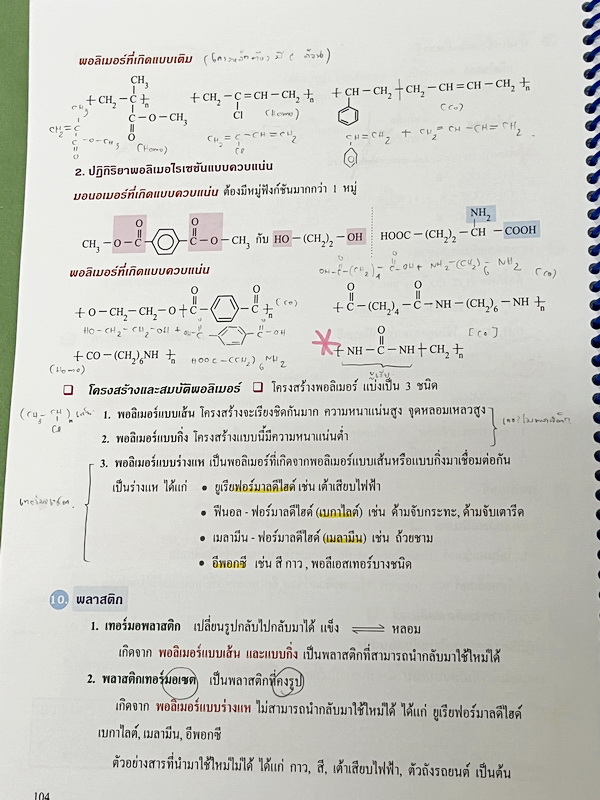 พอลิเมอร์ที่เกิดแบบเติม
CH₃
+ CH₂ – C + n
C – O – CH₃
O
+ CH₂ – C = CH – CH₂ + n
Cl
+ CH – CH₂ + CH₂ – CH = CH – CH₂ + n
(Homo) (Homo) (Co)
CH₂ = C – CH = CH₂
Cl
CH = CH₂ + CH₂ = CH – CH = CH₂
2. ปฏิกิริยาพอลิเมอไรเซชันแบบควบแน่น
มอนอเมอร์ที่เกิดแบบควบแน่น ต้องมีหมู่ฟังก์ชันมากกว่า 1 หมู่
O O NH₂
CH₃ – O – C – C – O – CH₃ กับ HO – (CH₂)₂ – OH HOOC – (CH₂)₂ – CH – COOH
พอลิเมอร์ที่เกิดแบบควบแน่น
+ O – CH₂ – CH₂ – O + C – C + n (Co)
+ C – (CH₂)₄ – C – NH – (CH₂)₆ – NH + n (Co)
HO – CH₂ – CH₂ – OH +
+ CO – (CH₂)₆NH + n HOOC – (CH₂)₆ NH₂
(Homo)
+ NH – C – NH + CH₂ + n [Co]
❑ โครงสร้างและสมบัติพอลิเมอร์ ❑ โครงสร้างพอลิเมอร์ แบ่งเป็น 3 ชนิด
1. พอลิเมอร์แบบเส้น โครงสร้างจะเรียงชิดกันมาก ความหนาแน่นสูง จุดหลอมเหลวสูง
2. พอลิเมอร์แบบกิ่ง โครงสร้างแบบนี้มีความหนาแน่นต่ำ
3. พอลิเมอร์แบบร่างแห เป็นพอลิเมอร์ที่เกิดจากพอลิเมอร์แบบเส้นหรือแบบกิ่งมาเชื่อมต่อกัน
เป็นร่างแห ได้แก่ • ยูเรียฟอร์มาลดีไฮด์ เช่น เต้าเสียบไฟฟ้า
• ฟีนอล - ฟอร์มาลดีไฮด์ (เบกาไลต์) เช่น ด้ามจับกระทะ, ด้ามจับเตารีด
• เมลามีน - ฟอร์มาลดีไฮด์ (เมลามีน) เช่น ถ้วยชาม
• อีพอกซี เช่น สี กาว , พอลีเอสเทอร์บางชนิด
10. พลาสติก
1. เทอร์มอพลาสติก เปลี่ยนรูปกลับไปกลับมาได้ แข็ง ⇌ หลอม
เกิดจาก พอลิเมอร์แบบเส้น และแบบกิ่ง เป็นพลาสติกที่สามารถนำกลับมาใช้ใหม่ได้
2. พลาสติกเทอร์มอเซต เป็นพลาสติกที่คงรูป
เกิดจาก พอลิเมอร์แบบร่างแห ไม่สามารถนำกลับมาใช้ใหม่ได้ ได้แก่ ยูเรียฟอร์มาลดีไฮด์
เบกาไลต์, เมลามีน, อีพอกซี
ตัวอย่างสารที่นำมาใช้ใหม่ไม่ได้ ได้แก่ กาว, สี, เต้าเสียบไฟฟ้า, ตัวถังรถยนต์ เป็นต้น
104